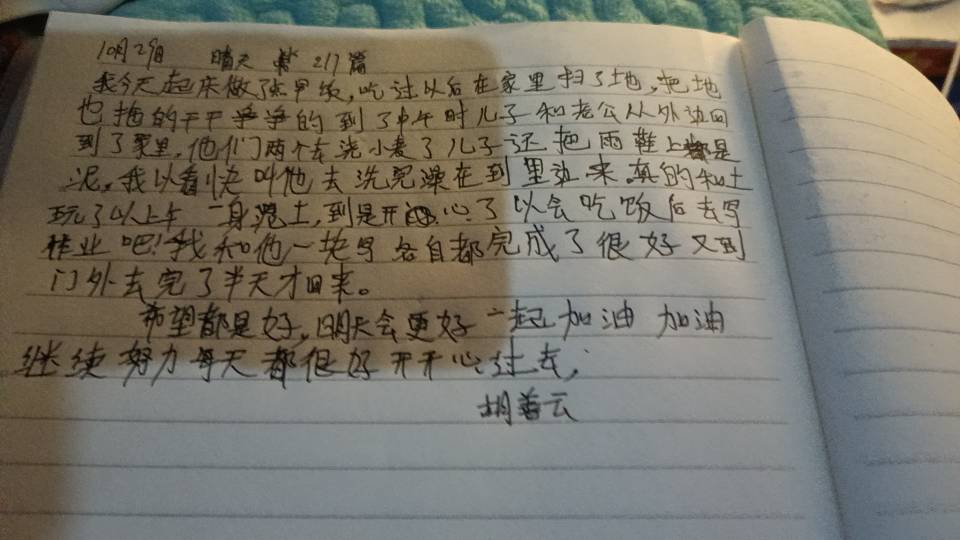 10月29日 晴天 第217篇
我今天起床做了点早饭,吃过以后在家里扫了地,把地
也拖的干干净净的到了中午时儿子和老公从外边回
到了家里,他们两个去洗小麦了儿子还把雨鞋上都是
泥。我以看快叫他去洗完澡在到里边来。真的和土
玩了以上午一身泥土,到是开心了以会吃饭后去写
作业吧!我和他一块写各自都完成了很好又到
门外去完了半天才回来。
希望都是好,明天会更好一起加油 加油
继续努力每天都很好开开心过去;
胡 云